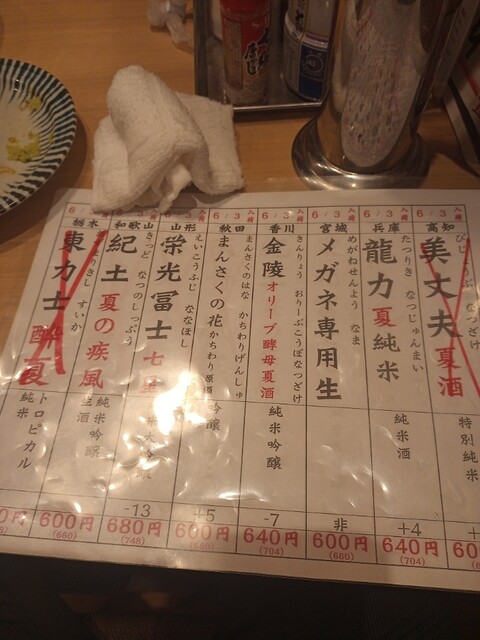 6/3入荷
高知
びじょうふ なつざけ
美丈夫 夏酒
特別純米
6/3入荷
兵庫
たつりき なつじゅんまい
龍力 夏純米
純米酒
+4
640円
(704)
6/3入荷
宮城
めがねせんよう なま
メガネ専用生
非
600円
(660)
6/3入荷
香川
きんりょう おりーぶこうぼなつざけ
金陵 オリーブ酵母夏酒
純米吟醸
-7
640円
(704)
6/3入荷
秋田
まんさくのはな かちわりげんしゅ
まんさくの花 かちわり原酒
吟醸
+5
600円
(660)
6/3入荷
山形
えいこうふじ ななほし
栄光冨士 七星
-13
680円
(748)
6/3入荷
和歌山
きっど なつのしっぷう
紀土 夏の疾風
純米吟醸
生酒
600円
(660)
栃木
すいか
東力士 酔夏
トロピカル
純米